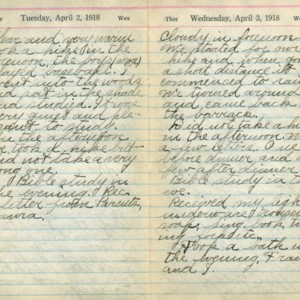 Tues Tuesday, April 2, 1918 Wed
and very warm
took a hike in the
forenoon, the boys
played baseball. I
went into the woods
& sat in the shade
and studied. It was
very quiet and plea-
sant to study
In the afternoon
we took a hike but
did not take a very
long one.
Bible study in
the evening. Rec.
letter from Parents,
Thur Wednesday, April 3, 1918
Cloudy in forenoon
We started for our
hike and when gone
a short distance it
commenced to
We turned around
and came back
the barracks.
Did not take a hi
in the afternoon.
a few letters. One
before dinner and
few after dinner
Bible study in t
eve.
Received my
soap,
ing
Took a bath
the evening.
and I.